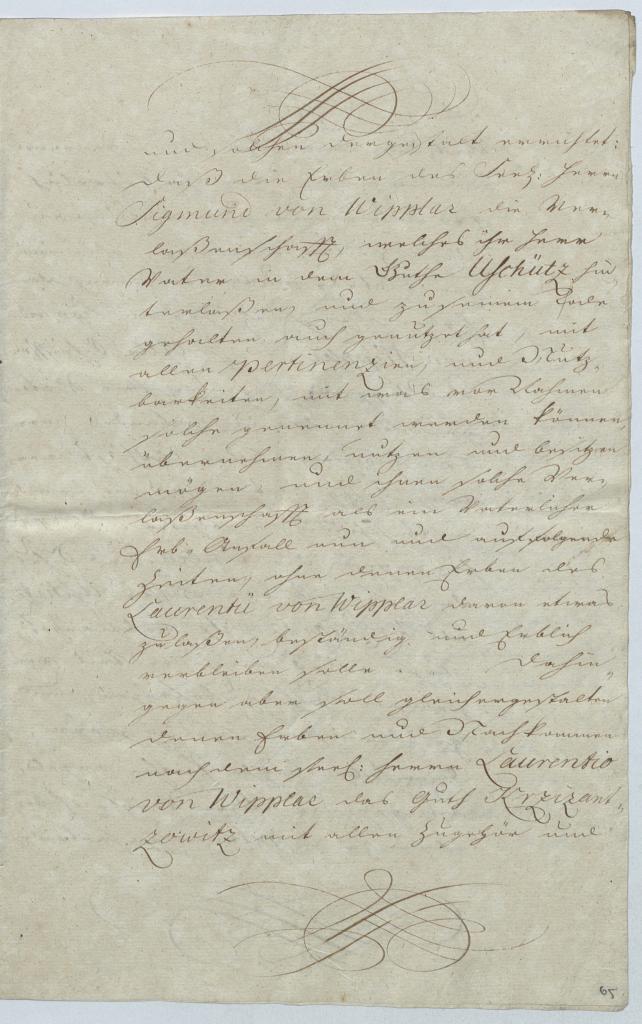 und solchen dergestalt errichtet:
daß die Erben des Seel: Herrn
Sigmund von Wipplar die Ver„
laßenschafft, welches ihr Herr
Vater in dem Guthe Uschütz hin„
terlaßen, und zu seinem Tode
gehalten auch genutzet hat, mit
allen pertinenzien, und Nutz„
barkeiten, mit was vor Nahmen
solche genennet werden können,
übernehmen, nutzen und besitzen
mögen, und ihnen solche Ver„
laßenschafft als ein Väterlicher
Erb-Anfall nun und auf folgende
Zeiten, ohne denen Erben des
Laurentii von Wipplar davon etwas
zulaßen, beständig und Erblich
verbleiben solle. Dahin„
gegen aber soll gleichergestalten
denen Erben und Nachkommen
nach dem seel: Herrn Laurentio
von Wipplar das Guth Krzizant„
zowitz mit allen Zugehör und
65